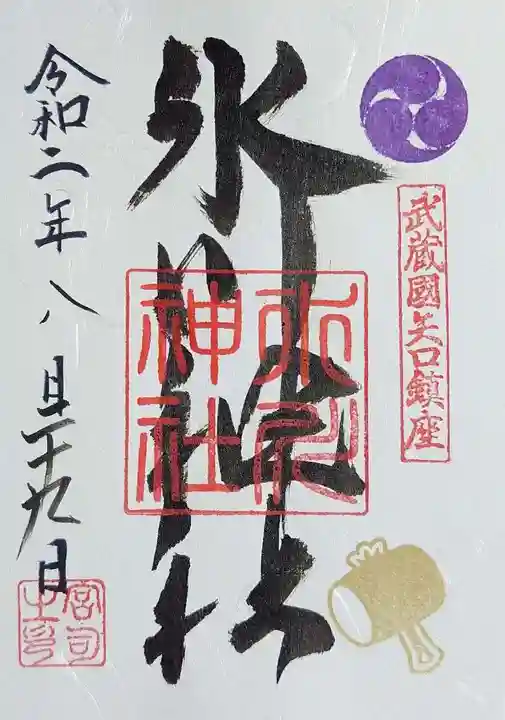 武蔵國矢口鎮座
氷川神社
氷川神社
令和二年八月二十九日
宮司之印